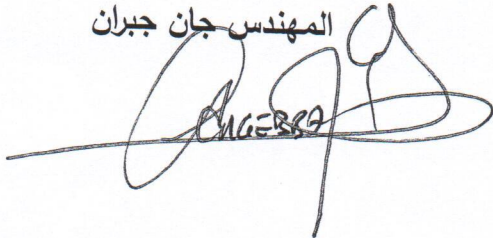 المهندس جان جبران